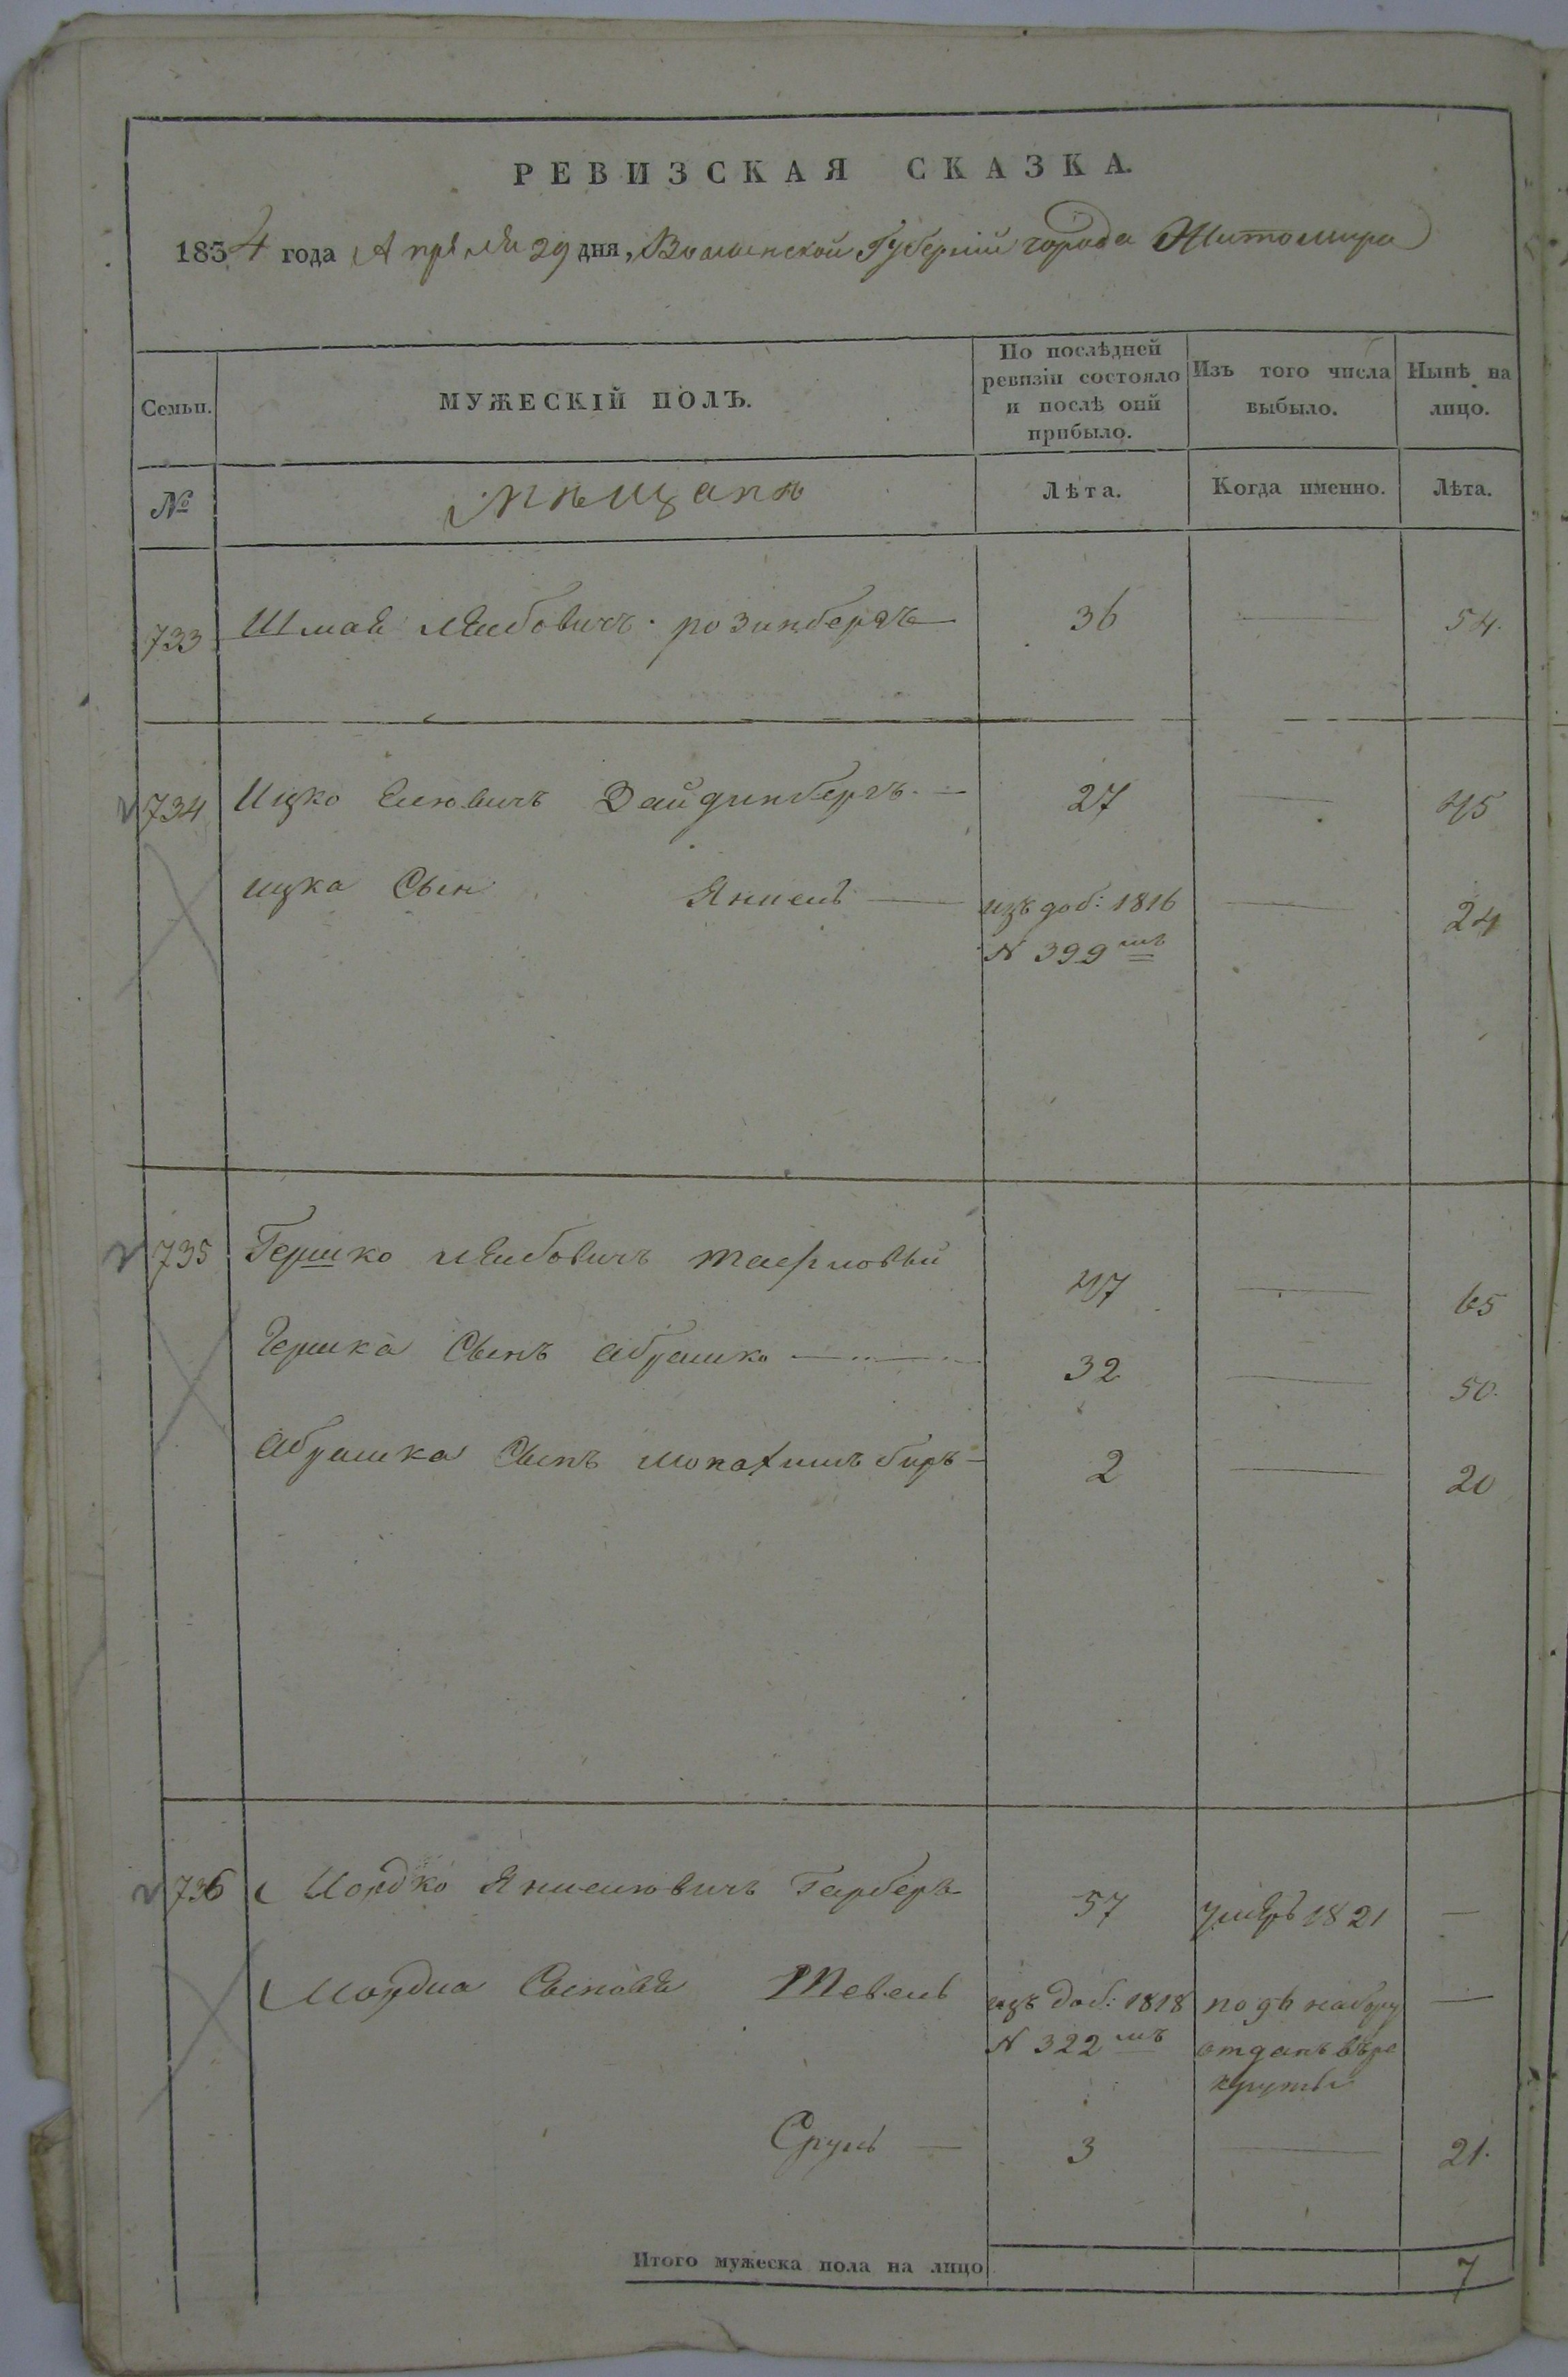 РЕВИЗСКАЯ СКАЗКА.
1834 года Апреля 29 дня, Волынской Губерніи города Житомира
Семьи.
МУЖЕСКІЙ ПОЛЪ.
По послѣдней
ревизіи состояло
и послѣ оній
прибыло.
Изъ того числа
выбыло.
Нынѣ на
лицо.
№
мѣщанѣ
Лѣта.
Когда именно.
Лѣта.
733 Шмая Лейбовичъ розинбергъ 36 — 54.
734 Ицко Елювичъ Вайдинбергъ — 27 — 45
ицка Сын Янкель — изъ доб: 1816 — 24
N 399 мъ
735 Гершко Лейбовичъ 47 — 65
Гершка Сынъ абрашко — 32 — 50.
абрашка Сынъ 2 — 20
736 Мордко Янкелювичъ Гарберъ 57 умеръ 1821 —
Мордка Сыновя Тевель изъ доб: 1818 по 96 набору —
N 322 мъ отданъ въ ре
круты
Сруль — 3 — 21.
Итого мужеска пола на лицо 7